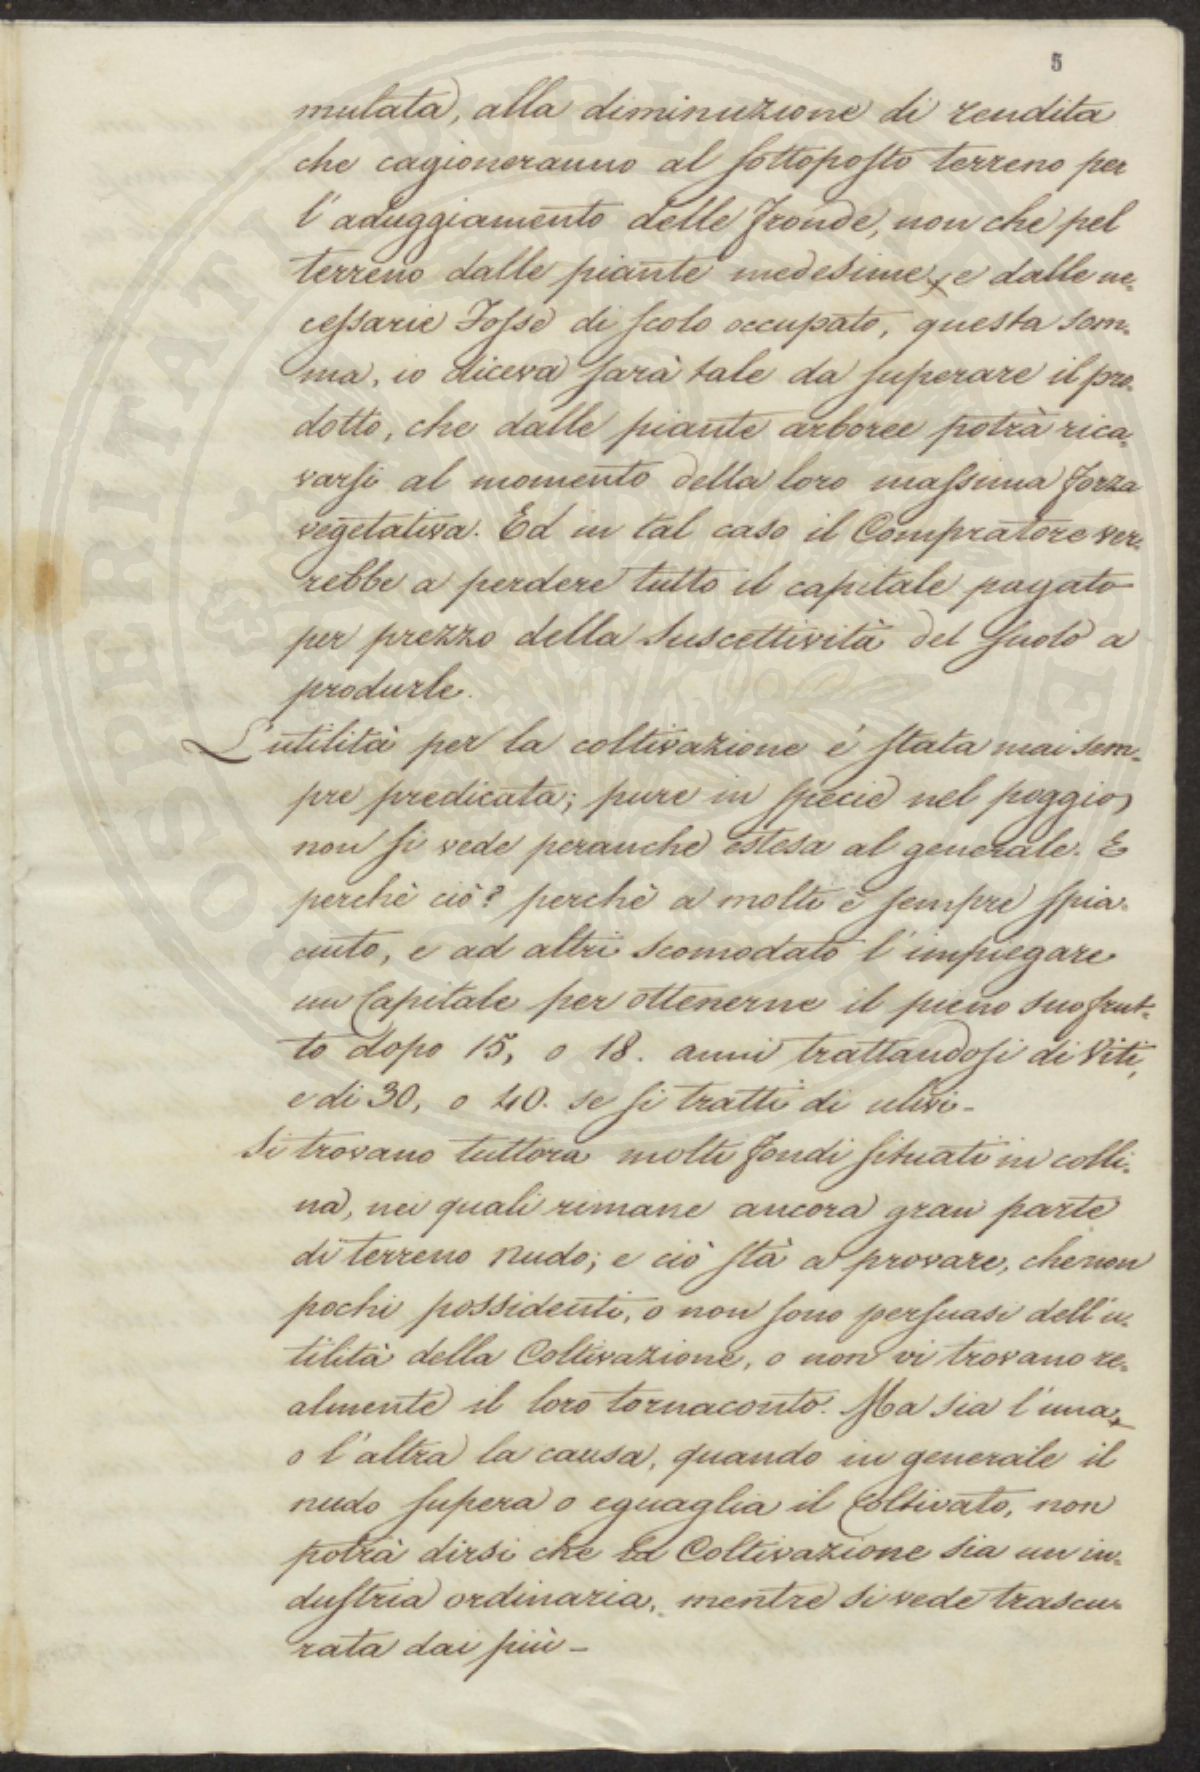 5
mulata, alla diminuzione di rendita
che cagioneranno al sottoposto terreno per
l'aduggiamento delle fronde, non che pel
terreno dalle piante medesime, e dalle ne-
cessarie Fosse di scolo occupato, questa som-
ma, io diceva sarà tale da superare il pro-
dotto, che dalle piante arboree potrà rica-
varsi al momento della loro massima forza
vegetativa. Ed in tal caso il Compratore ver-
rebbe a perdere tutto il capitale pagato
per prezzo della suscettività del suolo a
produrle.
L'utilità per la coltivazione è stata mai sem-
pre predicata; pure in specie nel poggio,
non si vede peranche estesa al generale. E
perchè ciò? perchè a molti è sempre spia-
ciuto, e ad altri scomodato l'impiegare
un Capitale per ottenerne il pieno suo frut-
to dopo 15, o 18. anni trattandosi di Viti,
e di 30, o 40. se si tratti di ulivi-
Si trovano tuttora molti fondi situati in colli-
na, nei quali rimane ancora gran parte
di terreno nudo; e ciò stà a provare, che non
pochi possidenti, o non sono persuasi dell'u-
tilità della Coltivazione, o non vi trovano re-
almente il loro tornaconto. Ma sia l'una,
o l'altra la causa, quando in generale il
nudo supera o eguaglia il Coltivato, non
potrà dirsi che la Coltivazione sia un in-
dustria ordinaria, mentre si vede trascu-
rata dai più-
PROSPERITATI PUBLICAE